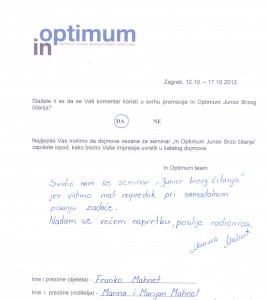 in optimum
Zagreb, 12.10. – 17.10.2012.
Slažete li se da se Vaš komentar koristi u svrhu promocije In Optimum Junior Brzog
čitanja?
DA NE
Najljepše Vas molimo da dojmove vezane za seminar „In Optimum Junior Brzo čitanje“
zapišete ispod, kako bismo Vaše impresije uvrstili u katalog dojmova.
In Optimum team
Svidio nam se seminar „Junior brzog čitanja“
jer vidimo mali napredak pri samostalnom
pisanju zadaće.
Nadam se većem napretku, poslije radionica.
Ime i prezime (djeteta) - Franko Mahnet
Ime i prezime (roditelja) - Marina i Marijan Mahnet